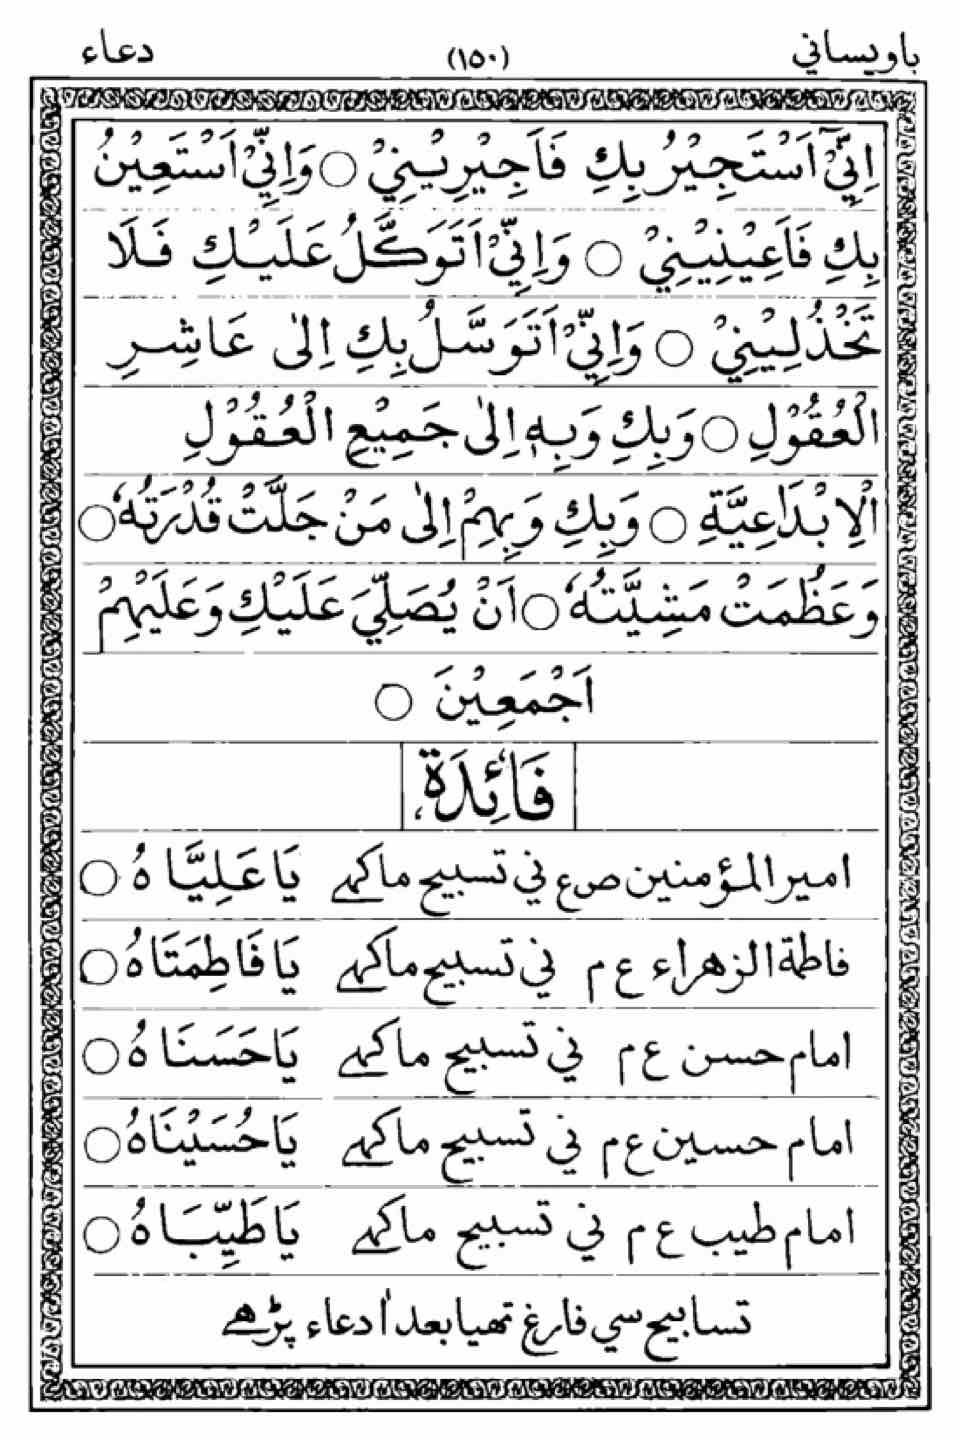 باويساني (١٥٠) دعاء
اِنِّيْٓ اَسْتَجِيْرُ بِكِ فَاَجِيْرِيْنِيْ ○ وَاِنِّيْ اَسْتَعِيْنُ
بِكِ فَاَعِيْنِيْنِيْ ○ وَاِنِّيْ اَتَوَكَّلُ عَلَيْكِ فَلَا
تَخْذُلِيْنِيْ ○ وَاِنِّيْ اَتَوَسَّلُ بِكِ اِلٰى عَاشِرِ
الْعُقُوْلِ ○ وَبِكِ وَبِهٖ اِلٰى جَمِيْعِ الْعُقُوْلِ
الْاِبْدَاعِيَّةِ ○ وَبِكِ وَبِهِمْ اِلٰى مَنْ جَلَّتْ قُدْرَتُهٗ ○
وَعَظُمَتْ مَشِيَّتُهٗ ○ اَنْ يُصَلِّيَ عَلَيْكِ وَعَلَيْهِمْ
اَجْمَعِيْنَ ○
فَائِدَة
امير المؤمنين ص ع ني تسبيح ما كہے يَا عَلِيَّاهُ ○
فاطمة الزهراء ع م ني تسبيح ما كہے يَا فَاطِمَتَاهُ ○
امام حسن ع م ني تسبيح ما كہے يَا حَسَنَاهُ ○
امام حسين ع م ني تسبيح ما كہے يَا حُسَيْنَاهُ ○
امام طيب ع م ني تسبيح ما كہے يَا طَيِّبَاهُ ○
تسابيح سي فارغ تهيا بعد اْ دعاء پڑهے